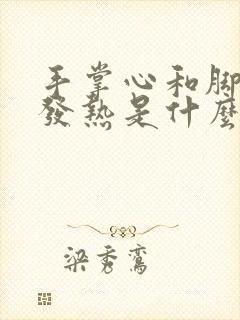 手掌心和腳
發熱是什麼
梁秀鸞